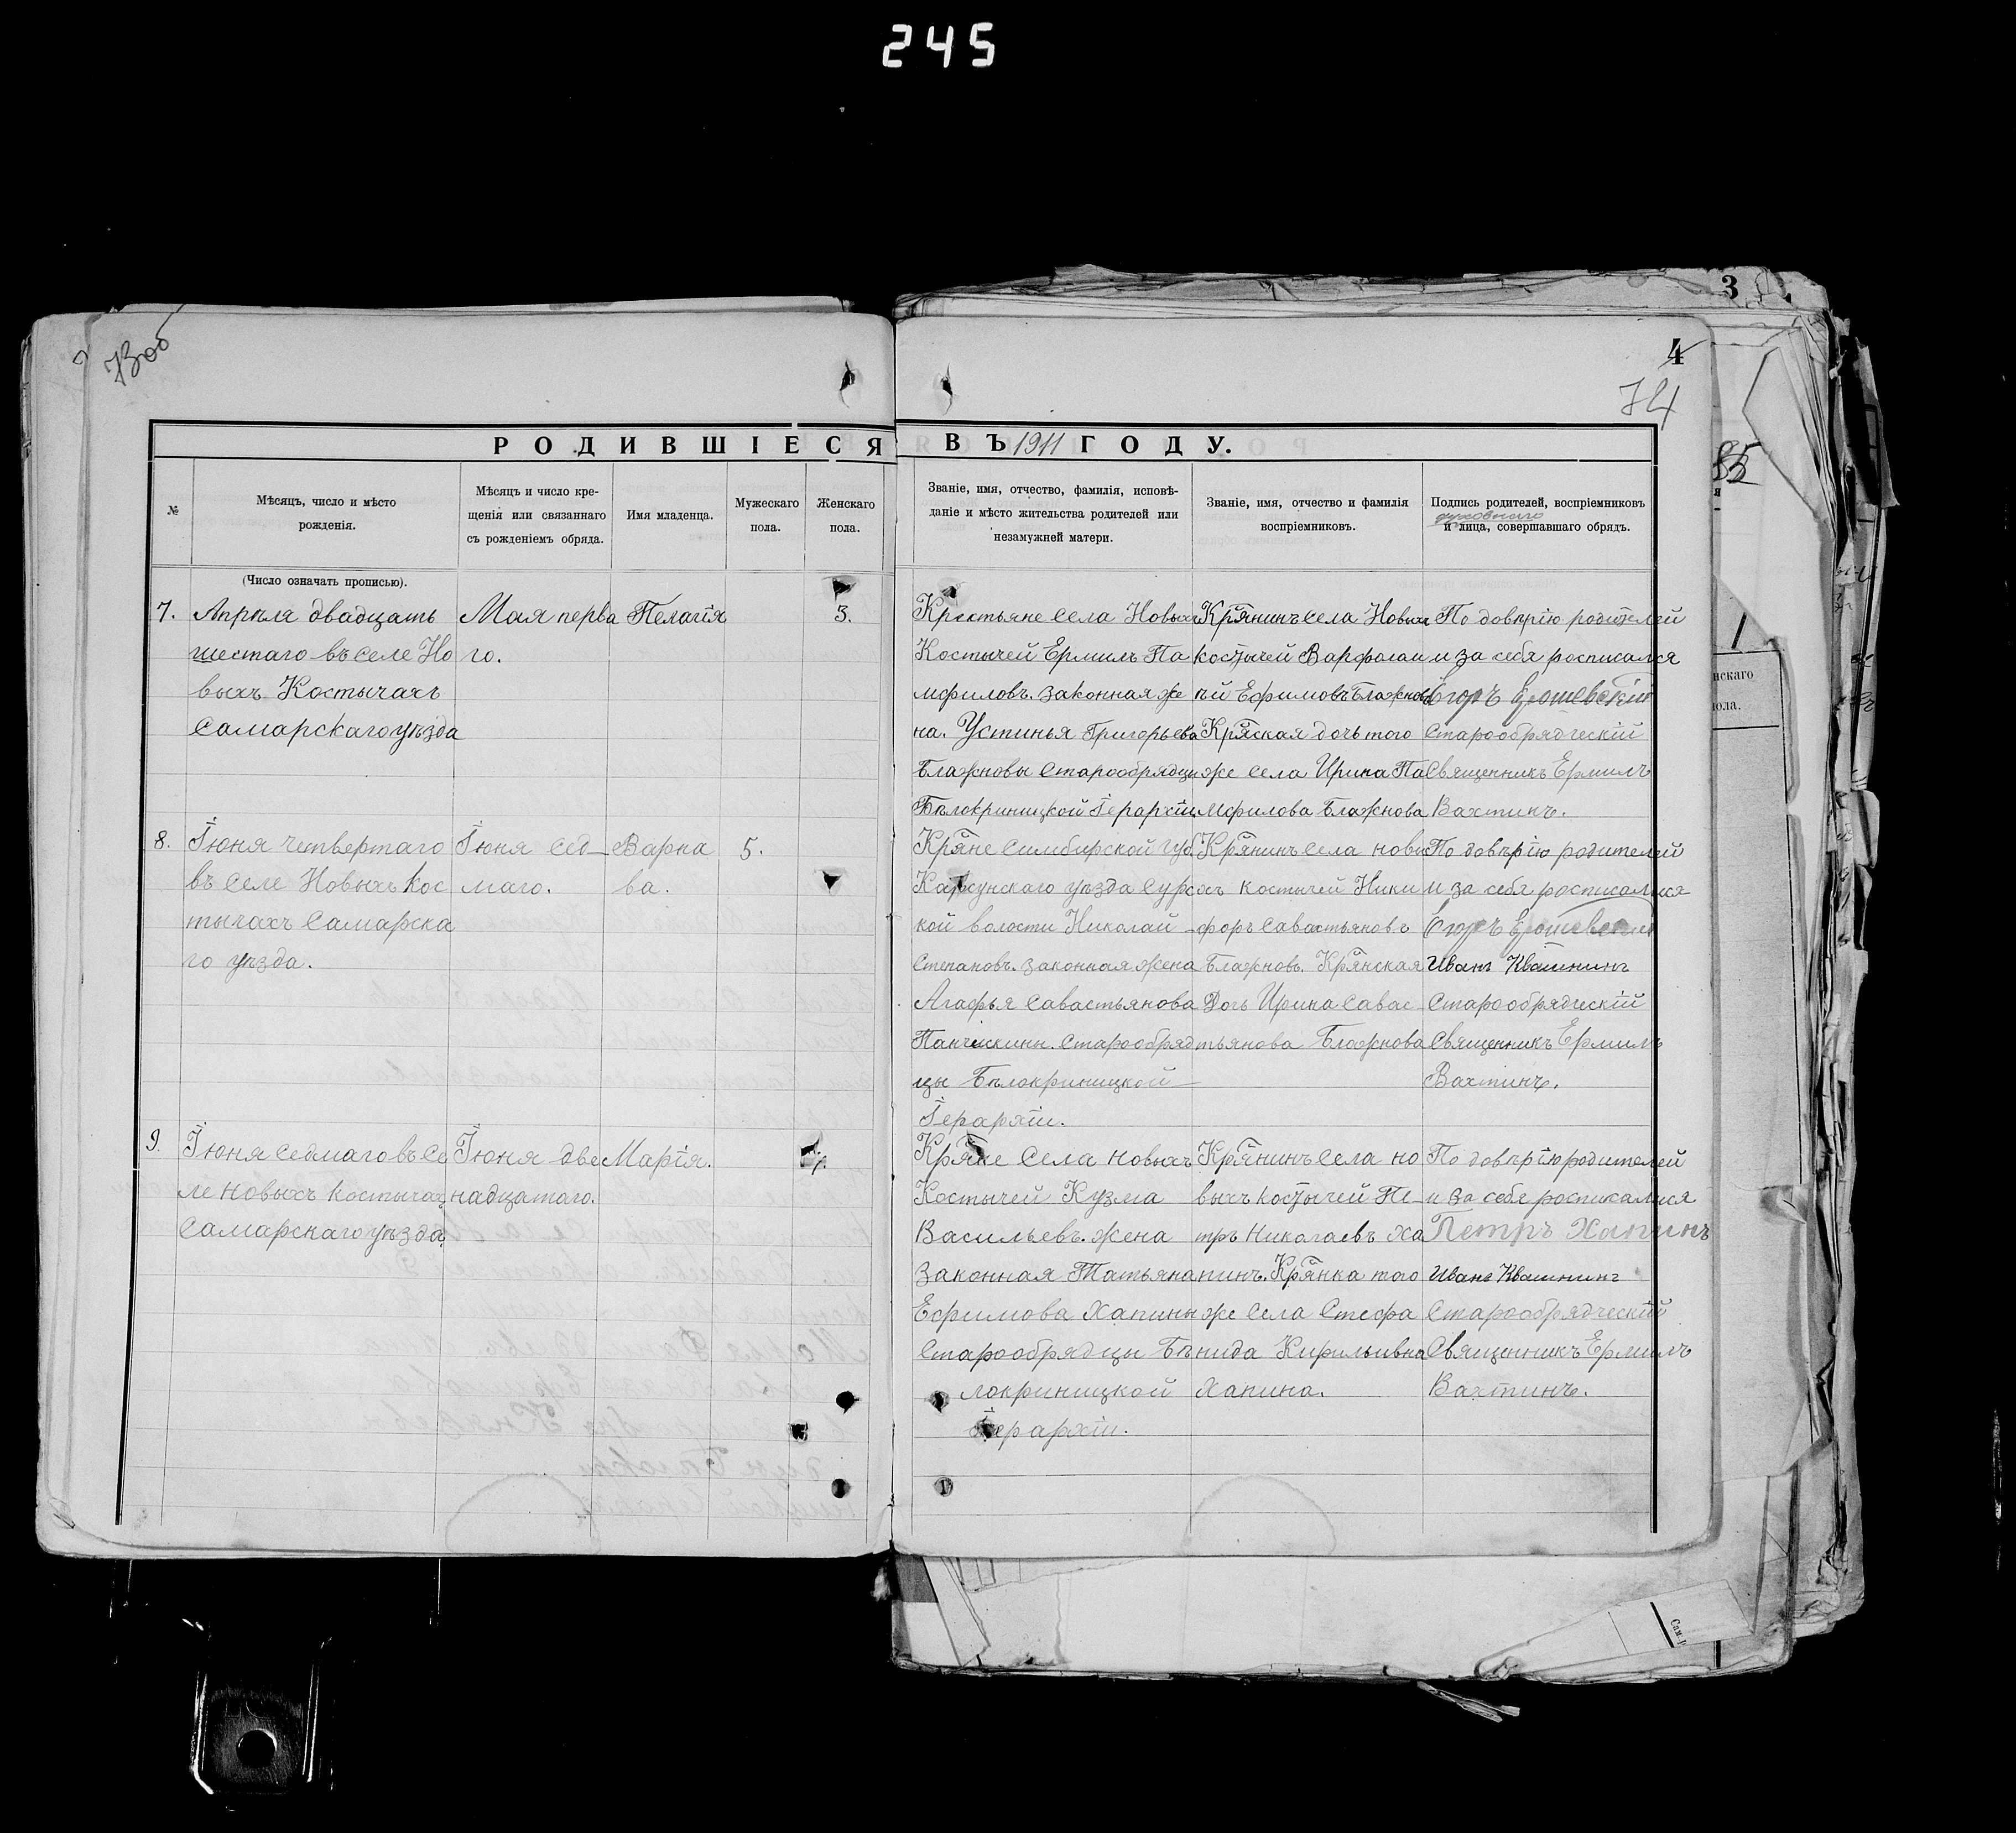 245
3
4
74
РОДИВШІЕСЯ ВЪ 1911 ГОДУ.
№
Мѣсяцъ, число и мѣсто
рожденія.
Мѣсяцъ и число кре-
щенія или связаннаго
съ рожденіемъ обряда.
Имя младенца.
Мужескаго
пола.
Женскаго
пола.
Званіе, имя, отчество, фамилія, исповѣ-
даніе и мѣсто жительства родителей или
незамужней матери.
Званіе, имя, отчество и фамилія
воспріемниковъ.
Подпись родителей, воспріемниковъ
духовнаго
и лица, совершавшаго обрядъ.
(Число означать прописью).
7.
Апрѣля двадцать
шестаго въ селе Но
выхъ Костычахъ
Самарскаго уѣзда
Мая перва
го.
Пелагія
3.
Крестьяне села Новыхъ
Костычей Ермилъ Па
мфиловъ. Законная же
на. Устинья Григорьева
Блажновы Старообрядцы
Бѣлокриницкой Іерархіи
Кр̃янинъ села Новыхъ
костычей Варфолом
ѣй Ефимовъ Блажновъ
Кр̃яская дочь того
же села Ирина Па
мфилова Блажнова
По довѣрію родителей
и за себя росписался
Егоръ Ерошевскій
Старообрядческій
Священникъ Ермилъ
Вахтинъ.
8.
Іюня четвертаго
въ селе Новыхъ Кос
тычахъ Самарска
го уѣзда.
Іюня сед-
маго.
Варна
ва.
5.
Кр̃яне Симбирской губ.
Карсунскаго уѣзда Сурс
кой волости Николай
Степановъ. Законная жена
Агафья Савастьянова
Старообряд
цы Бѣлокриницкой
Іерархіи.
Кр̃янинъ села новы
хъ костычей Ники
форъ Савастьяновъ
Блажновъ. Кр̃янская
Дочь Ирина Савас-
тьянова Блажнова
По довѣрію родителей
и за себя росписалися
Егоръ Ерошевскій
Иванъ Квашнинъ
Старообрядческій
Священникъ Ермилъ
Вахтинъ.
9.
Іюня седмаго въ се
ле новыхъ костычахъ
Самарскаго уѣзда.
Іюня две
надцатаго.
Марія.
4.
Кр̃яне села новыхъ
Костычей Кузма
Васильевъ. жена
законная Татьяна
Ефимова Хапины
Старообрядцы Бѣ
локриницкой
Іерархіи.
Кр̃янинъ села но
выхъ костычей Пе-
тръ Николаевъ Ха
пинъ. Кр̃янка того
же села Стефа
нида Кирильивна
Хапина.
По довѣрію родителей
и за себя росписалися
Петръ Хапинъ
Иванъ Квашнинъ
Старообрядческій
Священникъ Ермилъ
Вахтинъ.